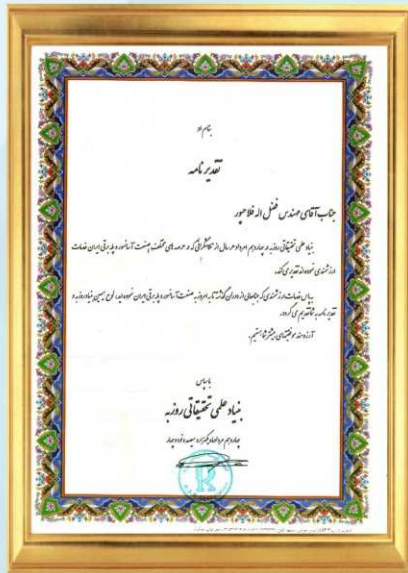 بنام او
تقدیر نامه
جناب آقای مهندس فضل اله فلاحپور
بنیاد علمی تحقیقاتی روزبه در چهاردهم امرداد هر سال از تلاشگرانی که در عرصه های مختلف صنعت آسانسور و پله برقی ایران خدمات
ارزشمندی نموده اند تقدیر می کند.
بپاس خدمات ارزشمندی که جنابعالی از دوران گذشته تا به امروز به صنعت آسانسور و پله برقی ایران نموده اید، لوح سیمین بنیاد روزبه و
تقدیر نامه به شما تقدیم می گردد.
آرزومند موفقیتهای بیشتر شما هستیم.
با سپاس
بنیاد علمی تحقیقاتی روزبه
چهاردهم مرداد ماه یکهزار و سیصد و نود و چهار
R